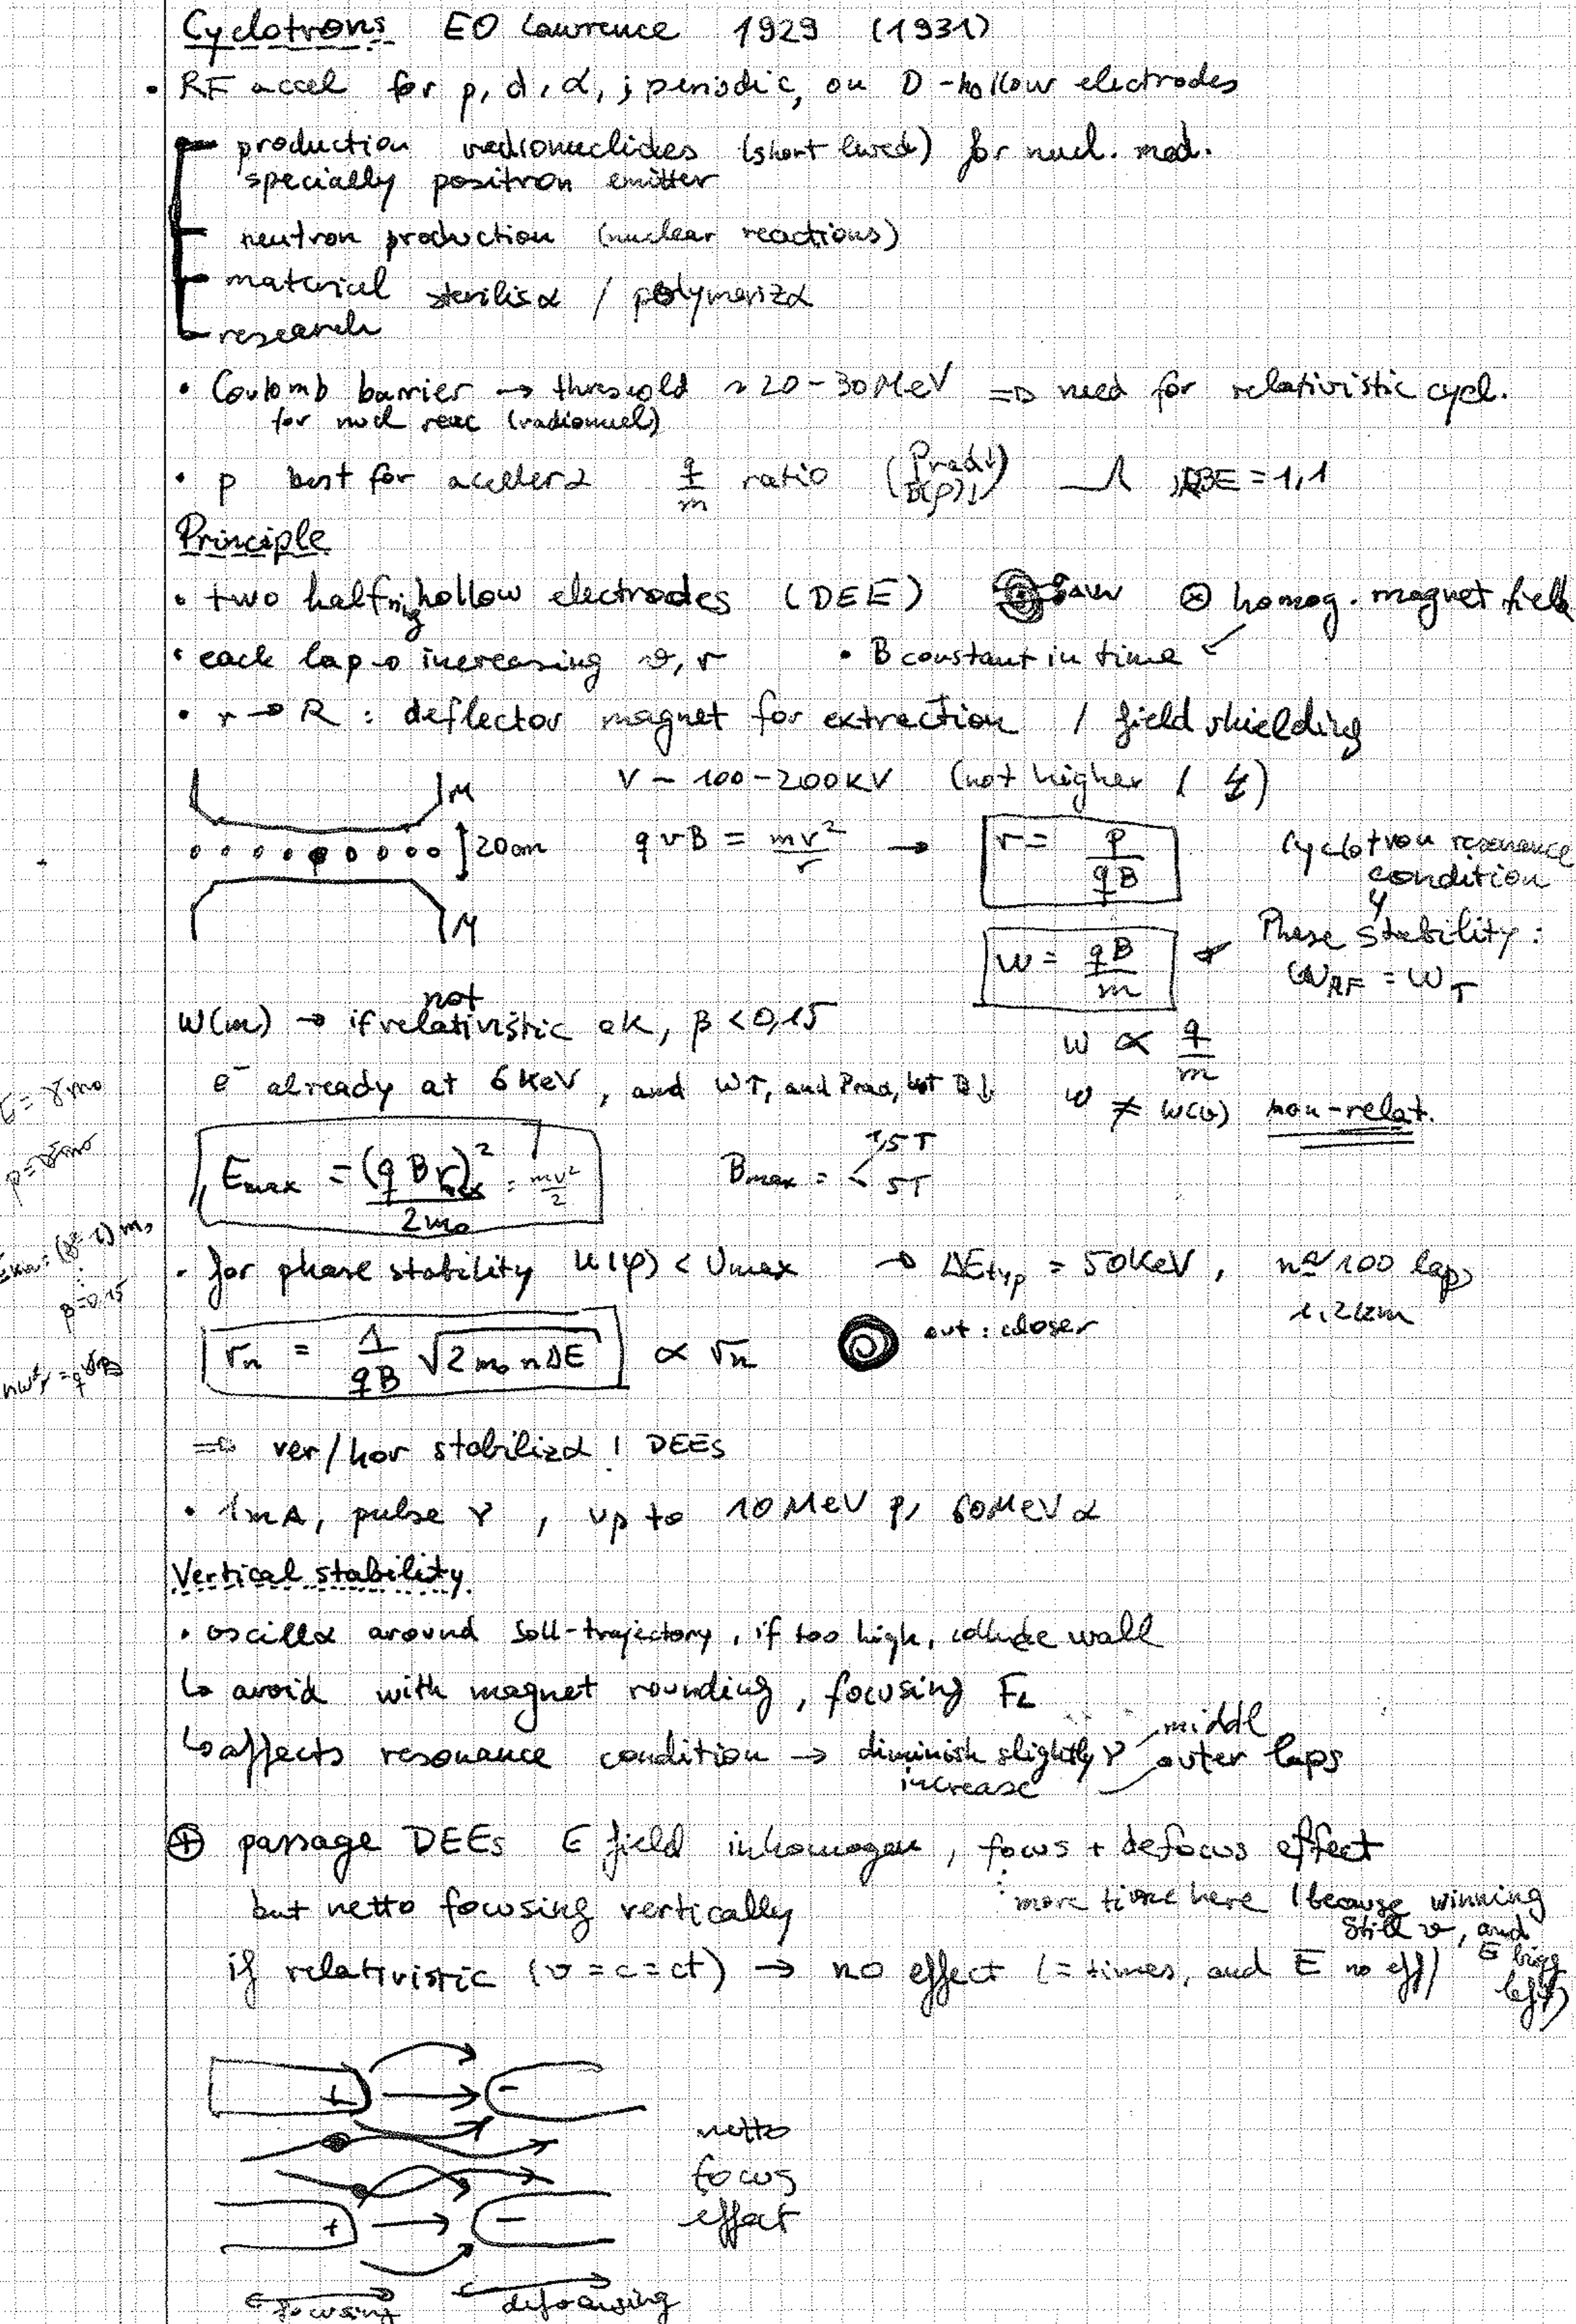 Cyclotrons EO Lawrence 1929 (1931)
• RF accel for p, d, α, ; periodic, on D-hollow electrodes
production radionuclides (short lived) for nucl. med.
specially positron emitter
neutron production (nuclear reactions)
material sterilisα / polymerizα
research
• Coulomb barrier → threshold ~ 20-30 MeV ⇒ need for relativistic cycl.
for nucl reac (radionucl)
• p best for accelerα q/m ratio (Prad↓ B(ρ)↓) RBE = 1,1
Principle
• two half ring hollow electrodes (DEE) ⊗ homog. magnet field
• each lap → increasing v, r • B constant in time
• r → R : deflector magnet for extraction / field shielding
V ~ 100-200kV (not higher / ↯)
M
20cm
M
qvB = mv²/r → r = p/qB
Cyclotron resonance
condition
ω = qB/m
Phase stability :
ω_RF = ω_T
ω(m) → if not relativistic ok, β < 0,15
ω ∝ q/m
e⁻ already at 6 keV, and ω↑, and Prad, but B↓
ω ≠ ω(v) non-relat.
p = γmv
β = 0,15
E_max = (q B r_max)²/2m₀ = mv²/2
B_max = < 1,5T 5T
• for phase stability U(φ) < U_max → ΔE_typ = 50keV, n ≈ 100 laps
1,2km
r_n = 1/qB √(2 m₀ n ΔE) ∝ √n out : closer
⇒ ver/hor stabilizα ! DEEs
• 1mA, pulse γ, up to 10 MeV p, 60MeV α
Vertical stability
• oscillα around Soll-trajectory, if too high, collide wall
↳ avoid with magnet rounding, focusing F_L
↳ affects resonance condition → diminish slightly γ middl
increase outer laps
⊕ passage DEEs E field inhomogen, focus + defocus effect
but netto focusing vertically
more time here (because winning
still v, and
E bigg
left)
if relativistic (v = c = ct) → no effect (= times, and E no eff)
+ -
netto
focus
effect
+ -
focusing defocusing